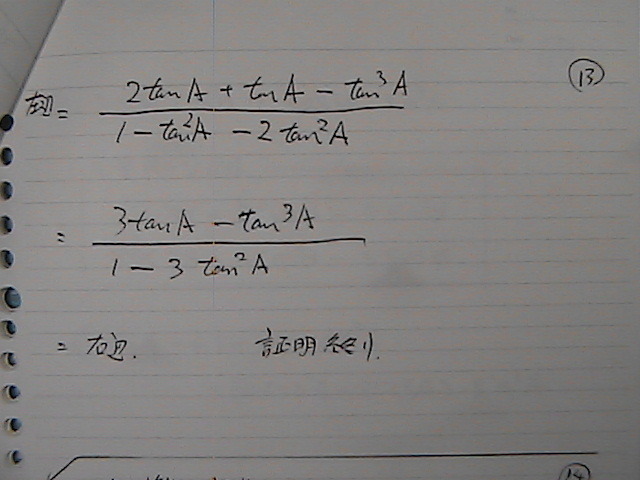 ⑬
左辺 = (2tanA + tanA − tan³A) / (1 − tan²A − 2tan²A)
= (3tanA − tan³A) / (1 − 3tan²A)
= 右辺. 証明終り.
⑭